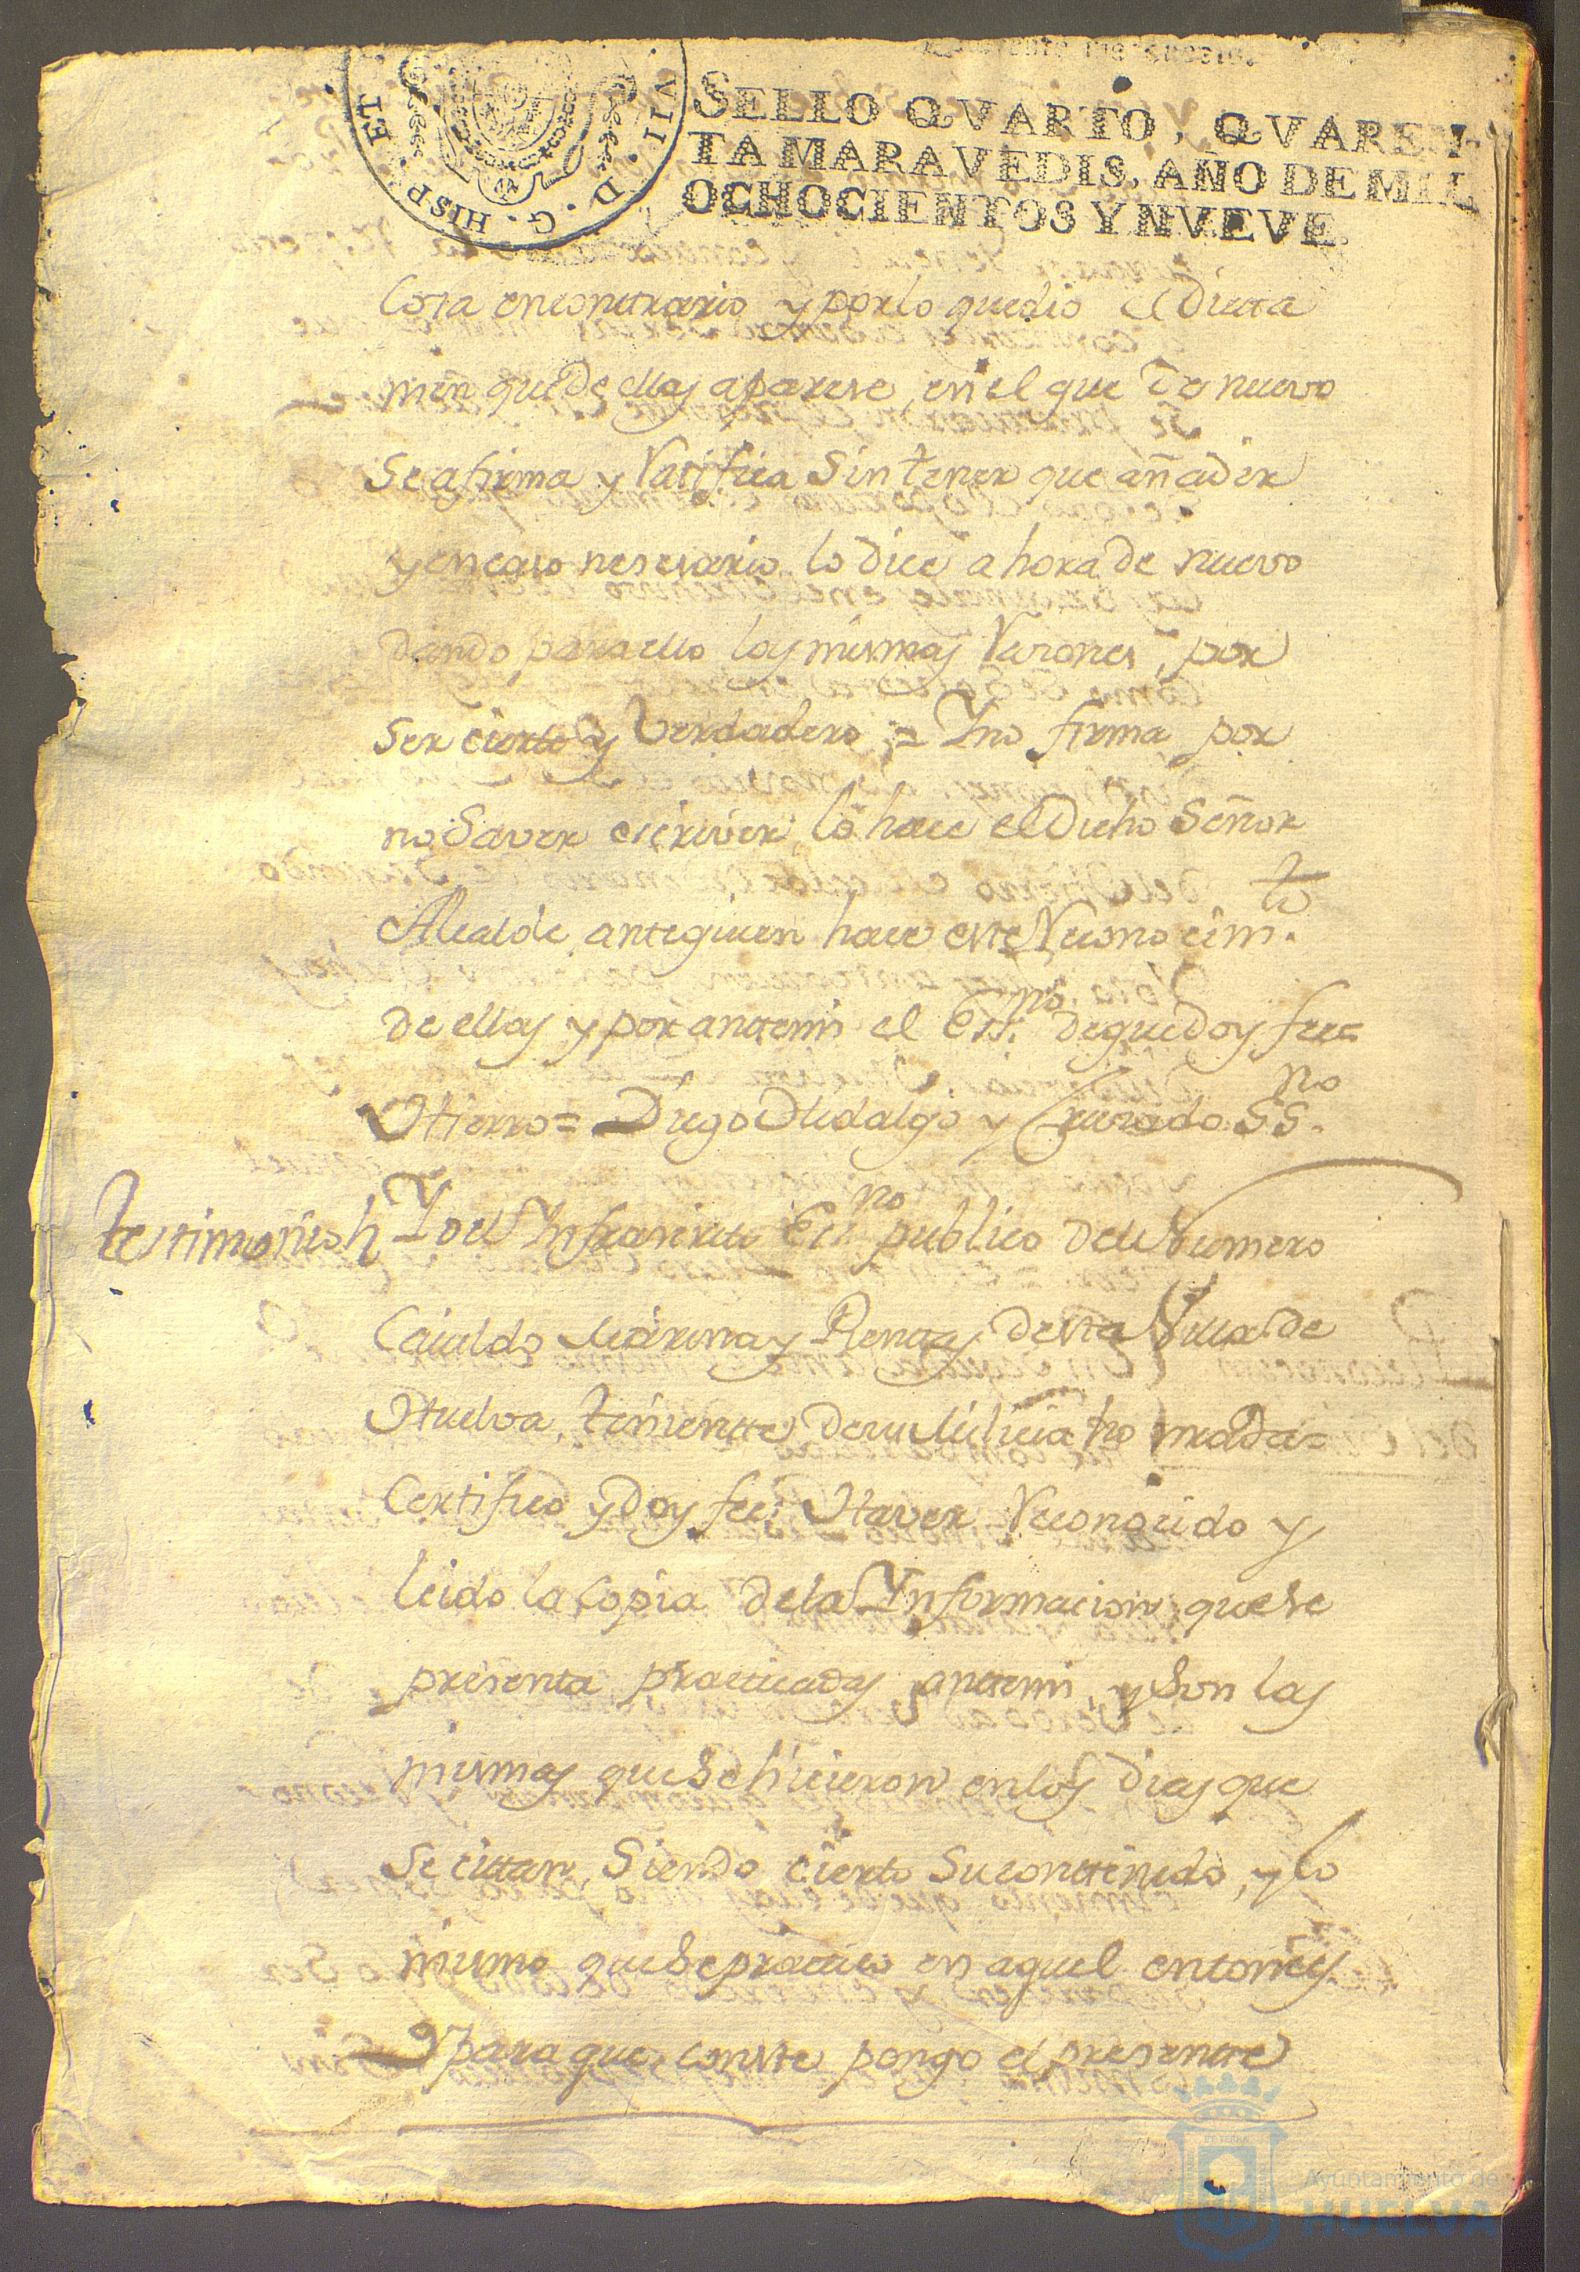 Quarenta maravedis.
VII · D · G · HISP · ET
SELLO QVARTO, QVAREN-
TA MARAVEDIS, AÑO DE MIL
OCHOCIENTOS Y NVEVE.
Cosa encontrario y porlo quedio el Dicta
men que de ellas aparese, en el que de nuevo
Se afirma y Ratifica Sin tener que añadir
y encaso nesesario lo dice ahora de nuevo
dando para ello las mismas Rasones, por
Ser cierto y Verdadero = Y no firma por
no Saver escriver, lo hace el Dicho Señor
Alcalde antequien hace este Reconocim.to
de ellas y por antemi el Ess.no de que doy fee=
Hierro = Diego Hidalgo y Quesada SS.no
Testimonio Yo el Ynfrascrito Ess.no publico del Numero
Cavildo Marina y Rentas desta Villa de
Huelva, teniente de su Milicia honrrada=
Certifico y Doy fee: Haver Reconocido y
leido la Copia de la Ynformacion que se
presenta practicadas antemi, y Son las
mismas que Se hicieron en los Dias que
Se citan, Siendo cierto Su contenido, y lo
mismo que Se practico en aquel entonces
Y para que conste pongo el presente
Ayuntamiento de
HUELVA